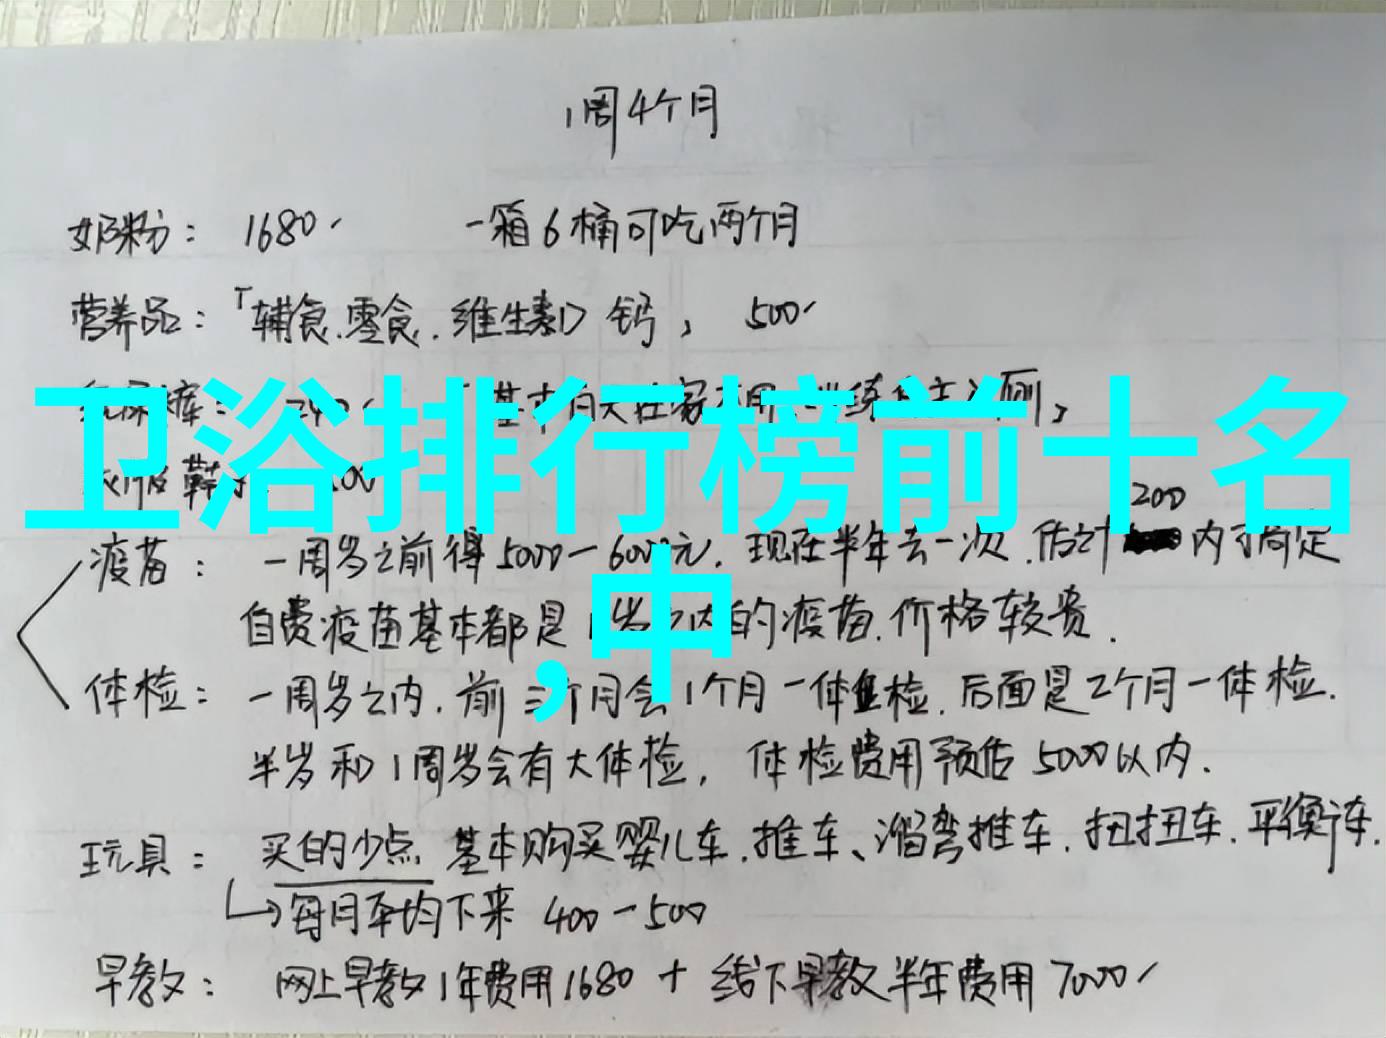 1周4个月
奶粉： 1680 一箱6桶可吃两个月
营养品：「辅食.零食.维生素D 钙， 500
卫浴排行榜前十名
,中
200
疫苗： 一周岁之前得5000-6000元.现在半年去一次.估计 内可搞定
自费疫苗基本都是 的疫苗.价格较贵.
体检： 一周岁之内.前三个月会1个月一体检.后面是2个月一体检.
半岁和1周岁会有大体检，体检费用预估5000以内.
玩具： 买的少点 基本购买婴儿车.推车、溜弯推车.扭扭车.平衡车.
每月平均下来 400-500
早教： 网上早教1年费用1680 + 线下早教半年费用7000